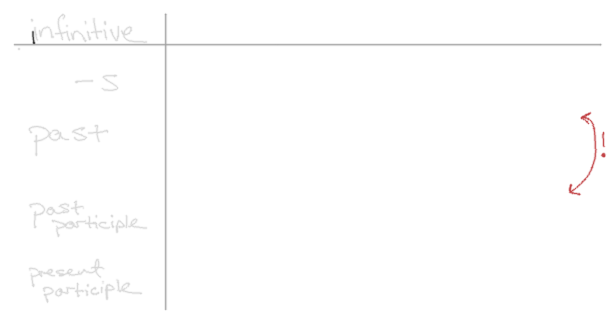 infinitive
-s
past
!
past
participle
present
participle